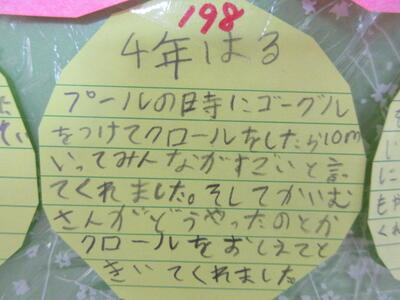 198
4年はる
プールの時にゴーグル
をつけてクロールをしたら10m
いってみんながすごいと言っ
てくれました。そしてかいむ
さんがどうやったのとか
クロールをおしえてと
きいてくれました